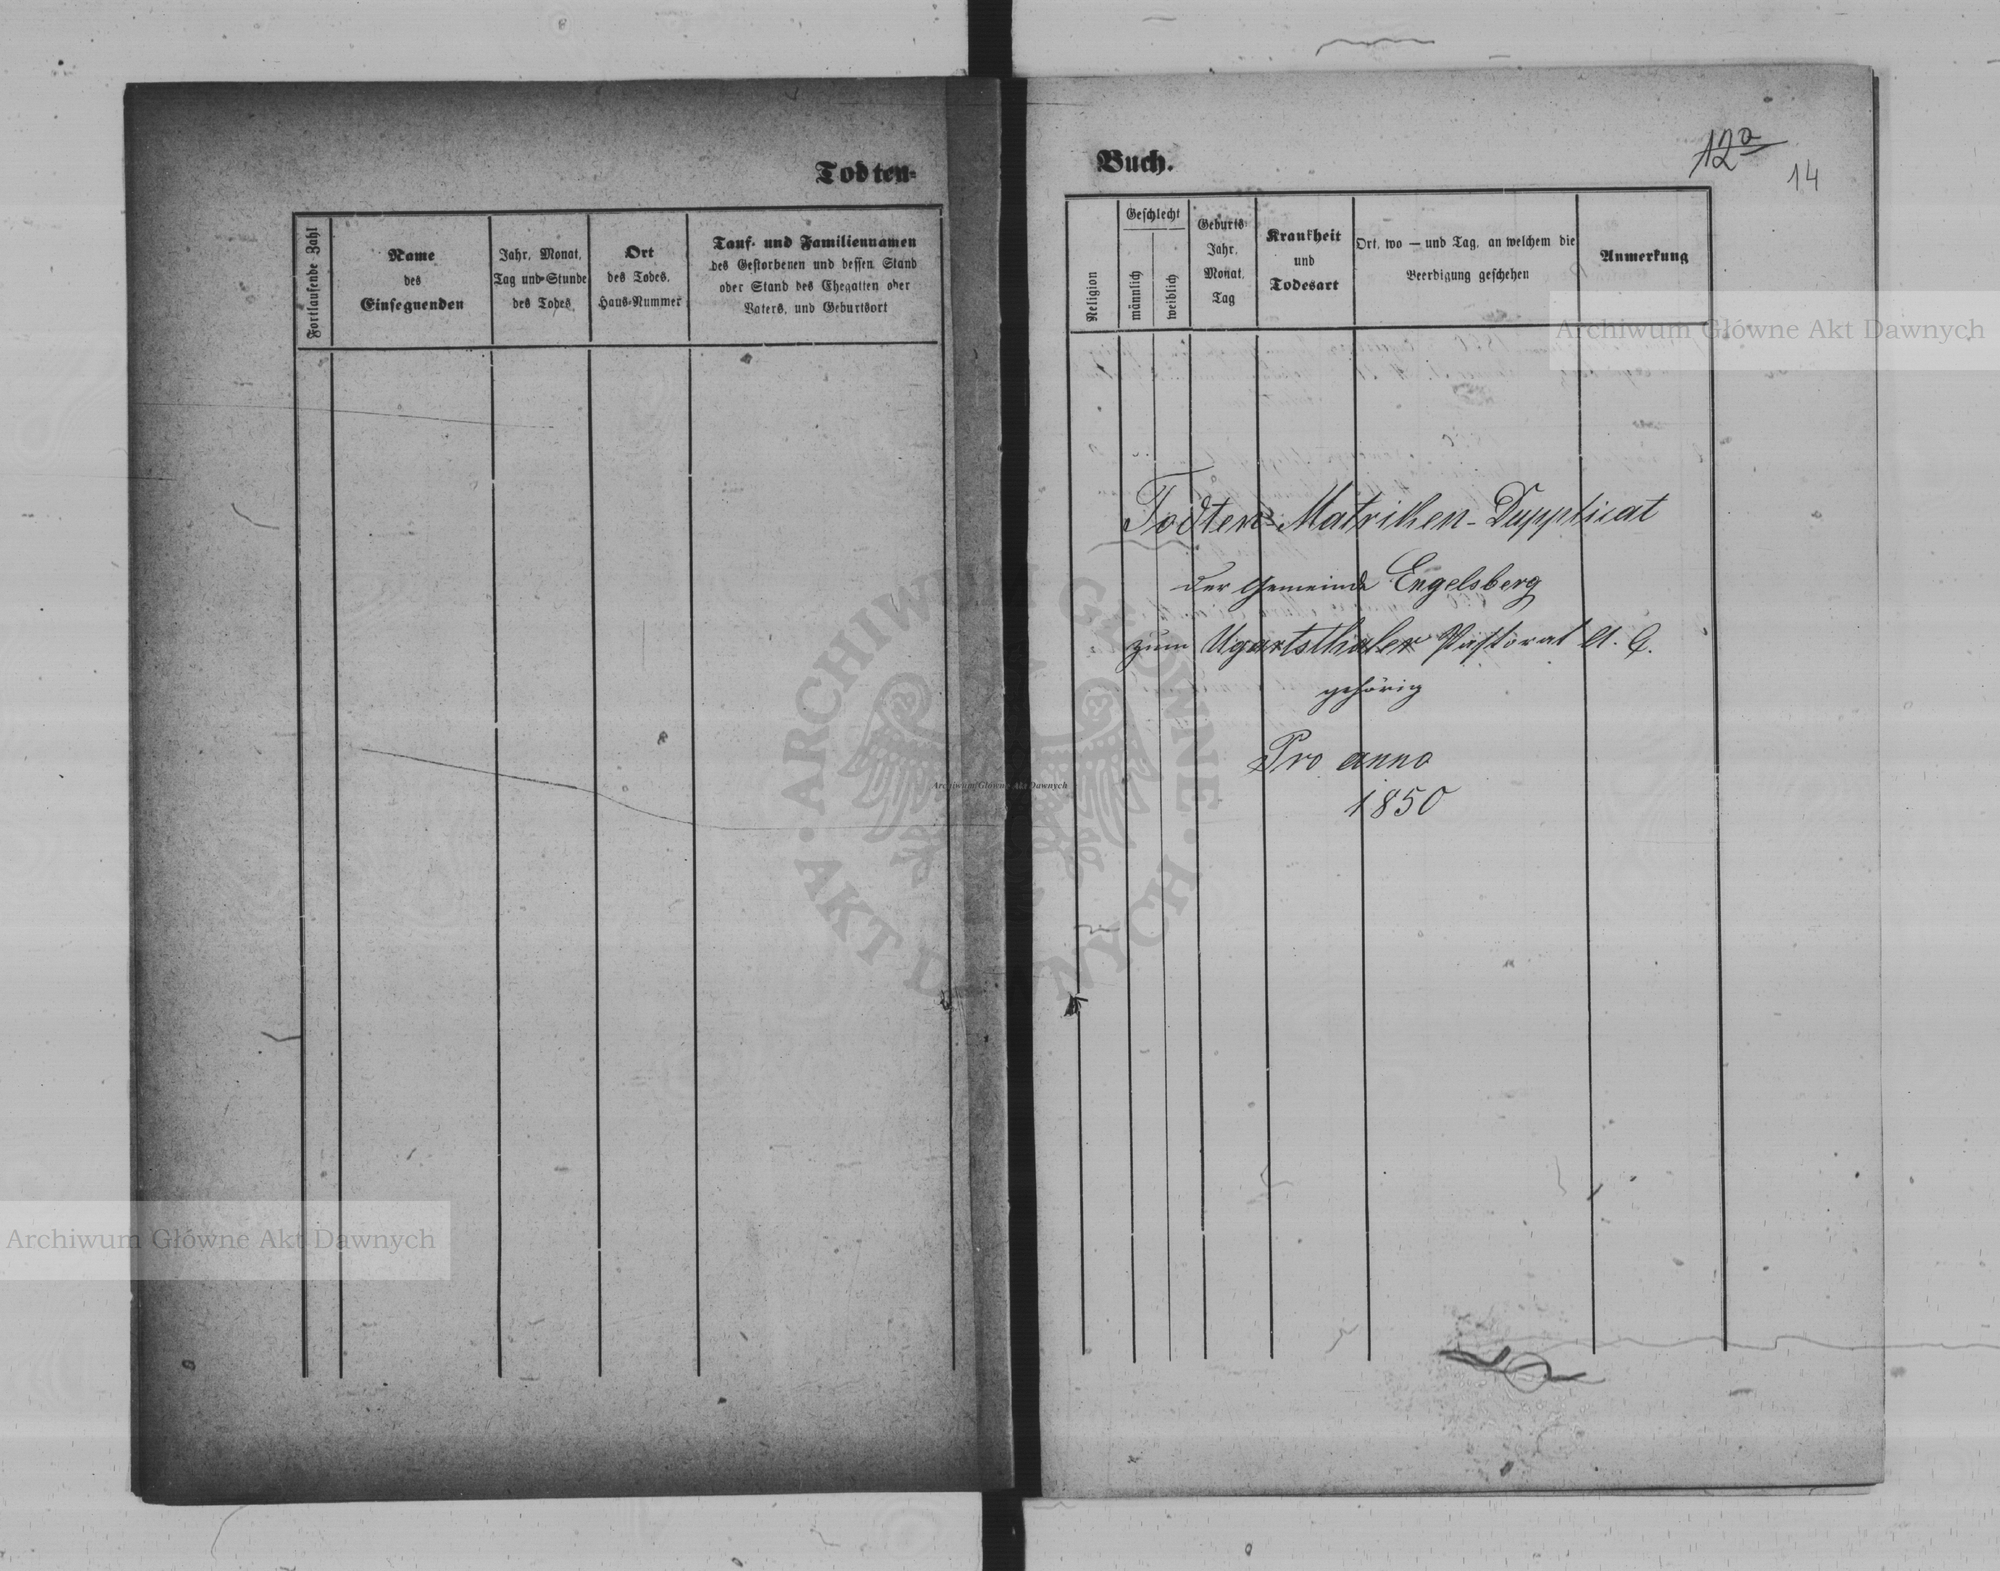 Todten-
Fortlaufende Zahl
Name
des
Einsegnenden
Jahr, Monat,
Tag und Stunde
des Todes
Ort
des Todes,
Haus-Nummer
Tauf- und Familiennamen
des Gestorbenen und dessen Stand
oder Stand des Ehegatten oder
Vaters, und Geburtsort
Buch.
12a
14
Religion
Geschlecht
männlich
weiblich
Geburts-
Jahr,
Monat,
Tag
Krankheit
und
Todesart
Ort, wo — und Tag, an welchem die
Beerdigung geschehen
Anmerkung
Todten-Matriken-Dupplicat
der Gemeinde Engelsberg
zum Ugartsthaler Pastorat A. C.
gehörig
Pro anno
1850
Archiwum Główne Akt Dawnych
Archiwum Główne Akt Dawnych
Archiwum Główne Akt Dawnych
ARCHIWUM GŁÓWNE · AKT DAWNYCH ·